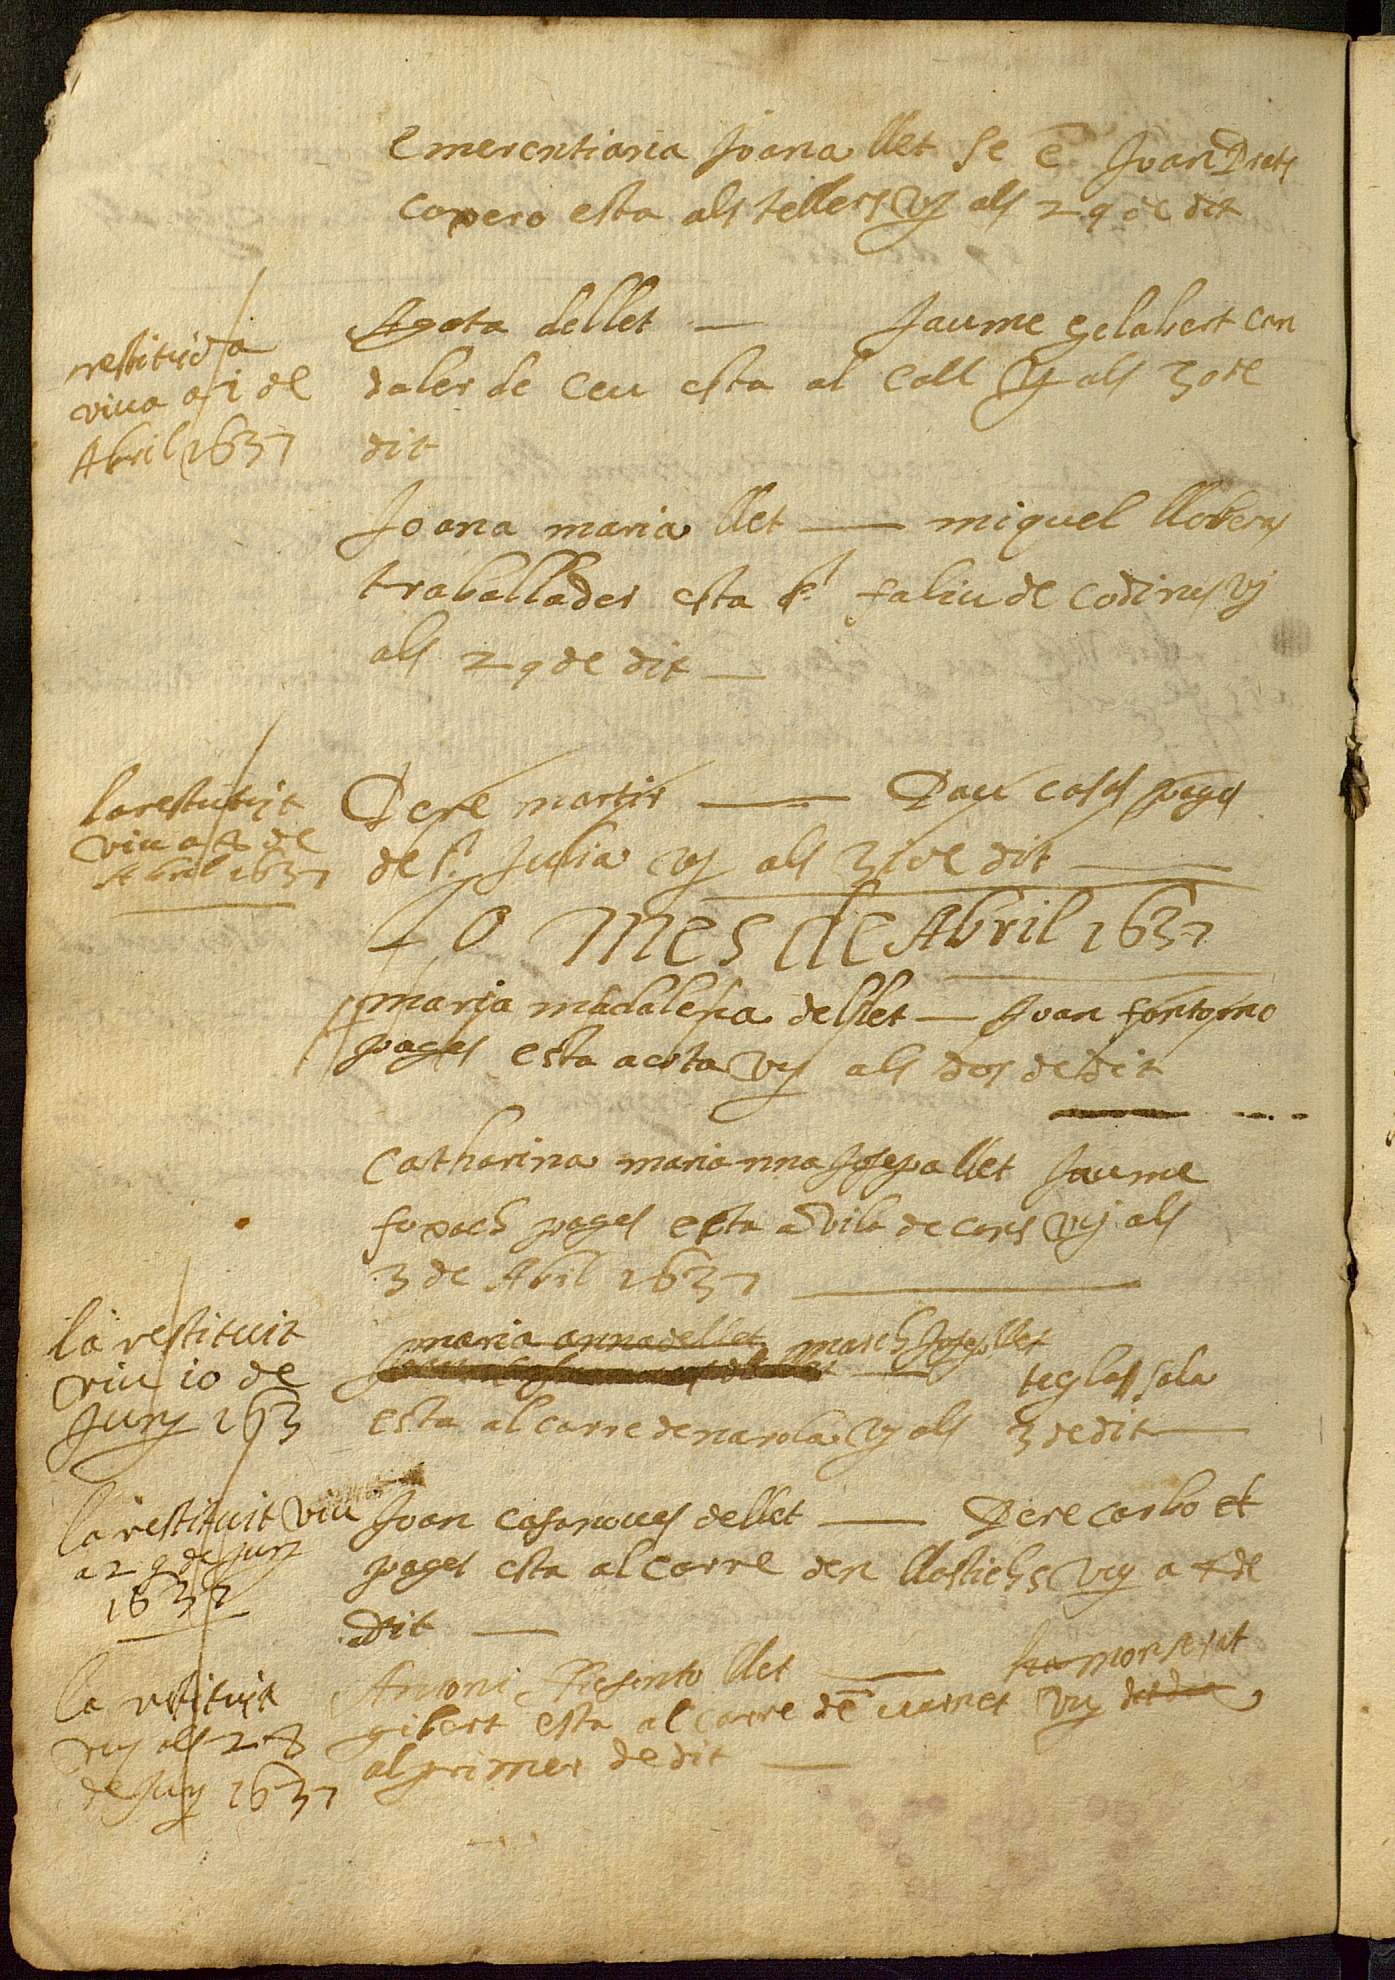 emerentiana Joana llet se e Joan Prats
capero esta als tellers vj als 29 de dit
restituida
viua a 1 de
Abril 1637
Agata dellet — Jaume gelabert can
daler de ceu esta al Coll vj als 30 de
dit
Joana maria llet — miquel lloberas
traballador esta st faliu de codines vj
als 29 de dit —
la restituit
viu a 8 de
Abril 1637
Pere martir — Pau casas pages
de st Julia vj als 31 de dit —
Lo Mes de Abril 1637
maria madalena dellet — Juan
pages esta a vj als dos de dit
Catharina marianna Josepa llet Jaume
pages esta a Vila de cans vj als
3 de Abril 1637 —
la restituit
viu 10 de
Juny 163
maria anna dellet march Josep llet
teglas sala
esta al carre de vj als 3 de dit —
la restituit viu
a 29 de Juny
1637
Joan Casanoues dellet — Pere carbo
pages esta al carre den llastichs vy a 4 de
dit —
la restituit
viu als 28
de Juny 1637
Antoni llet — monserat
gibert esta al carre de vy
al primer de dit —